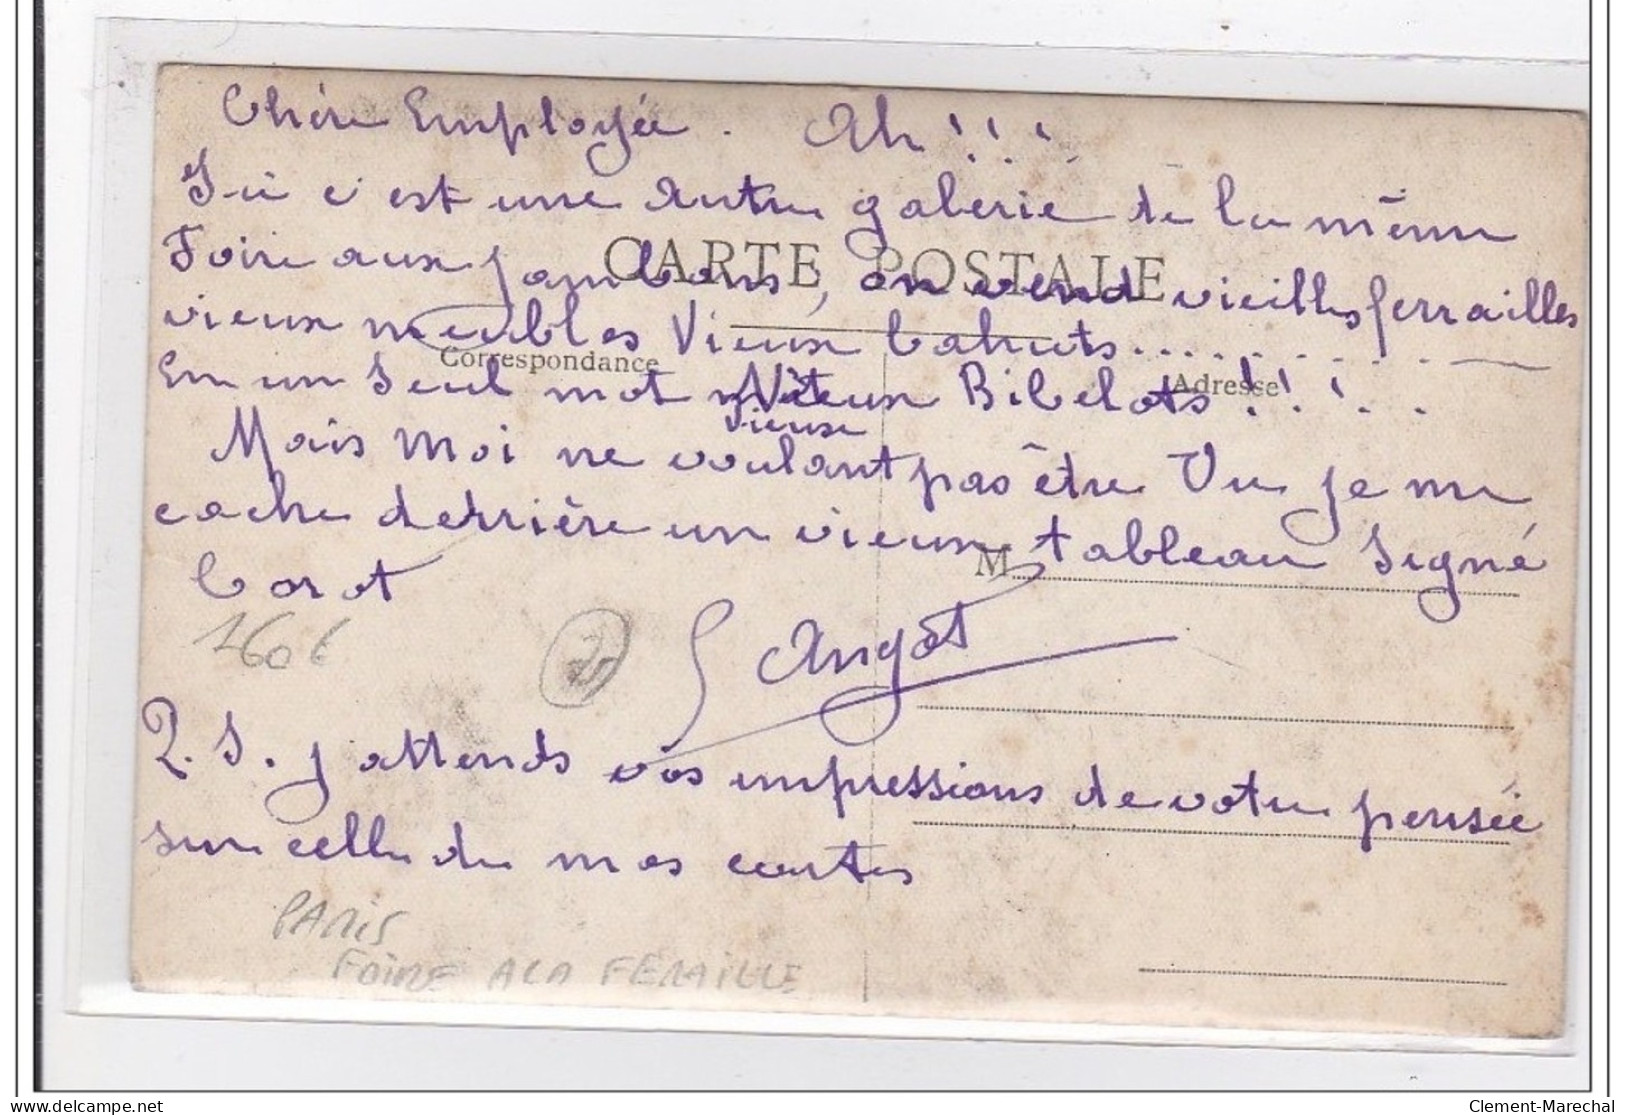 Chère Employée. Ah!!!
Ici c'est une autre galerie de la même
CARTE POSTALE
Foire aux jambons, on vend vieilles ferrailles
vieux meubles Vieux bahuts..........
Correspondance
Adresse
En un seul mot Vieux Bibelots!!!..
Vieux
Mais moi ne voulant pas être Vu je me
cache derrière un vieux tableau Signé
M
Corot
160€
Angot
P.S. j'attends vos impressions de votre pensée
sur celle de mes cartes
PARIS
FOIRE A LA FERAILLE
delcampe.net
Clement-Marechal